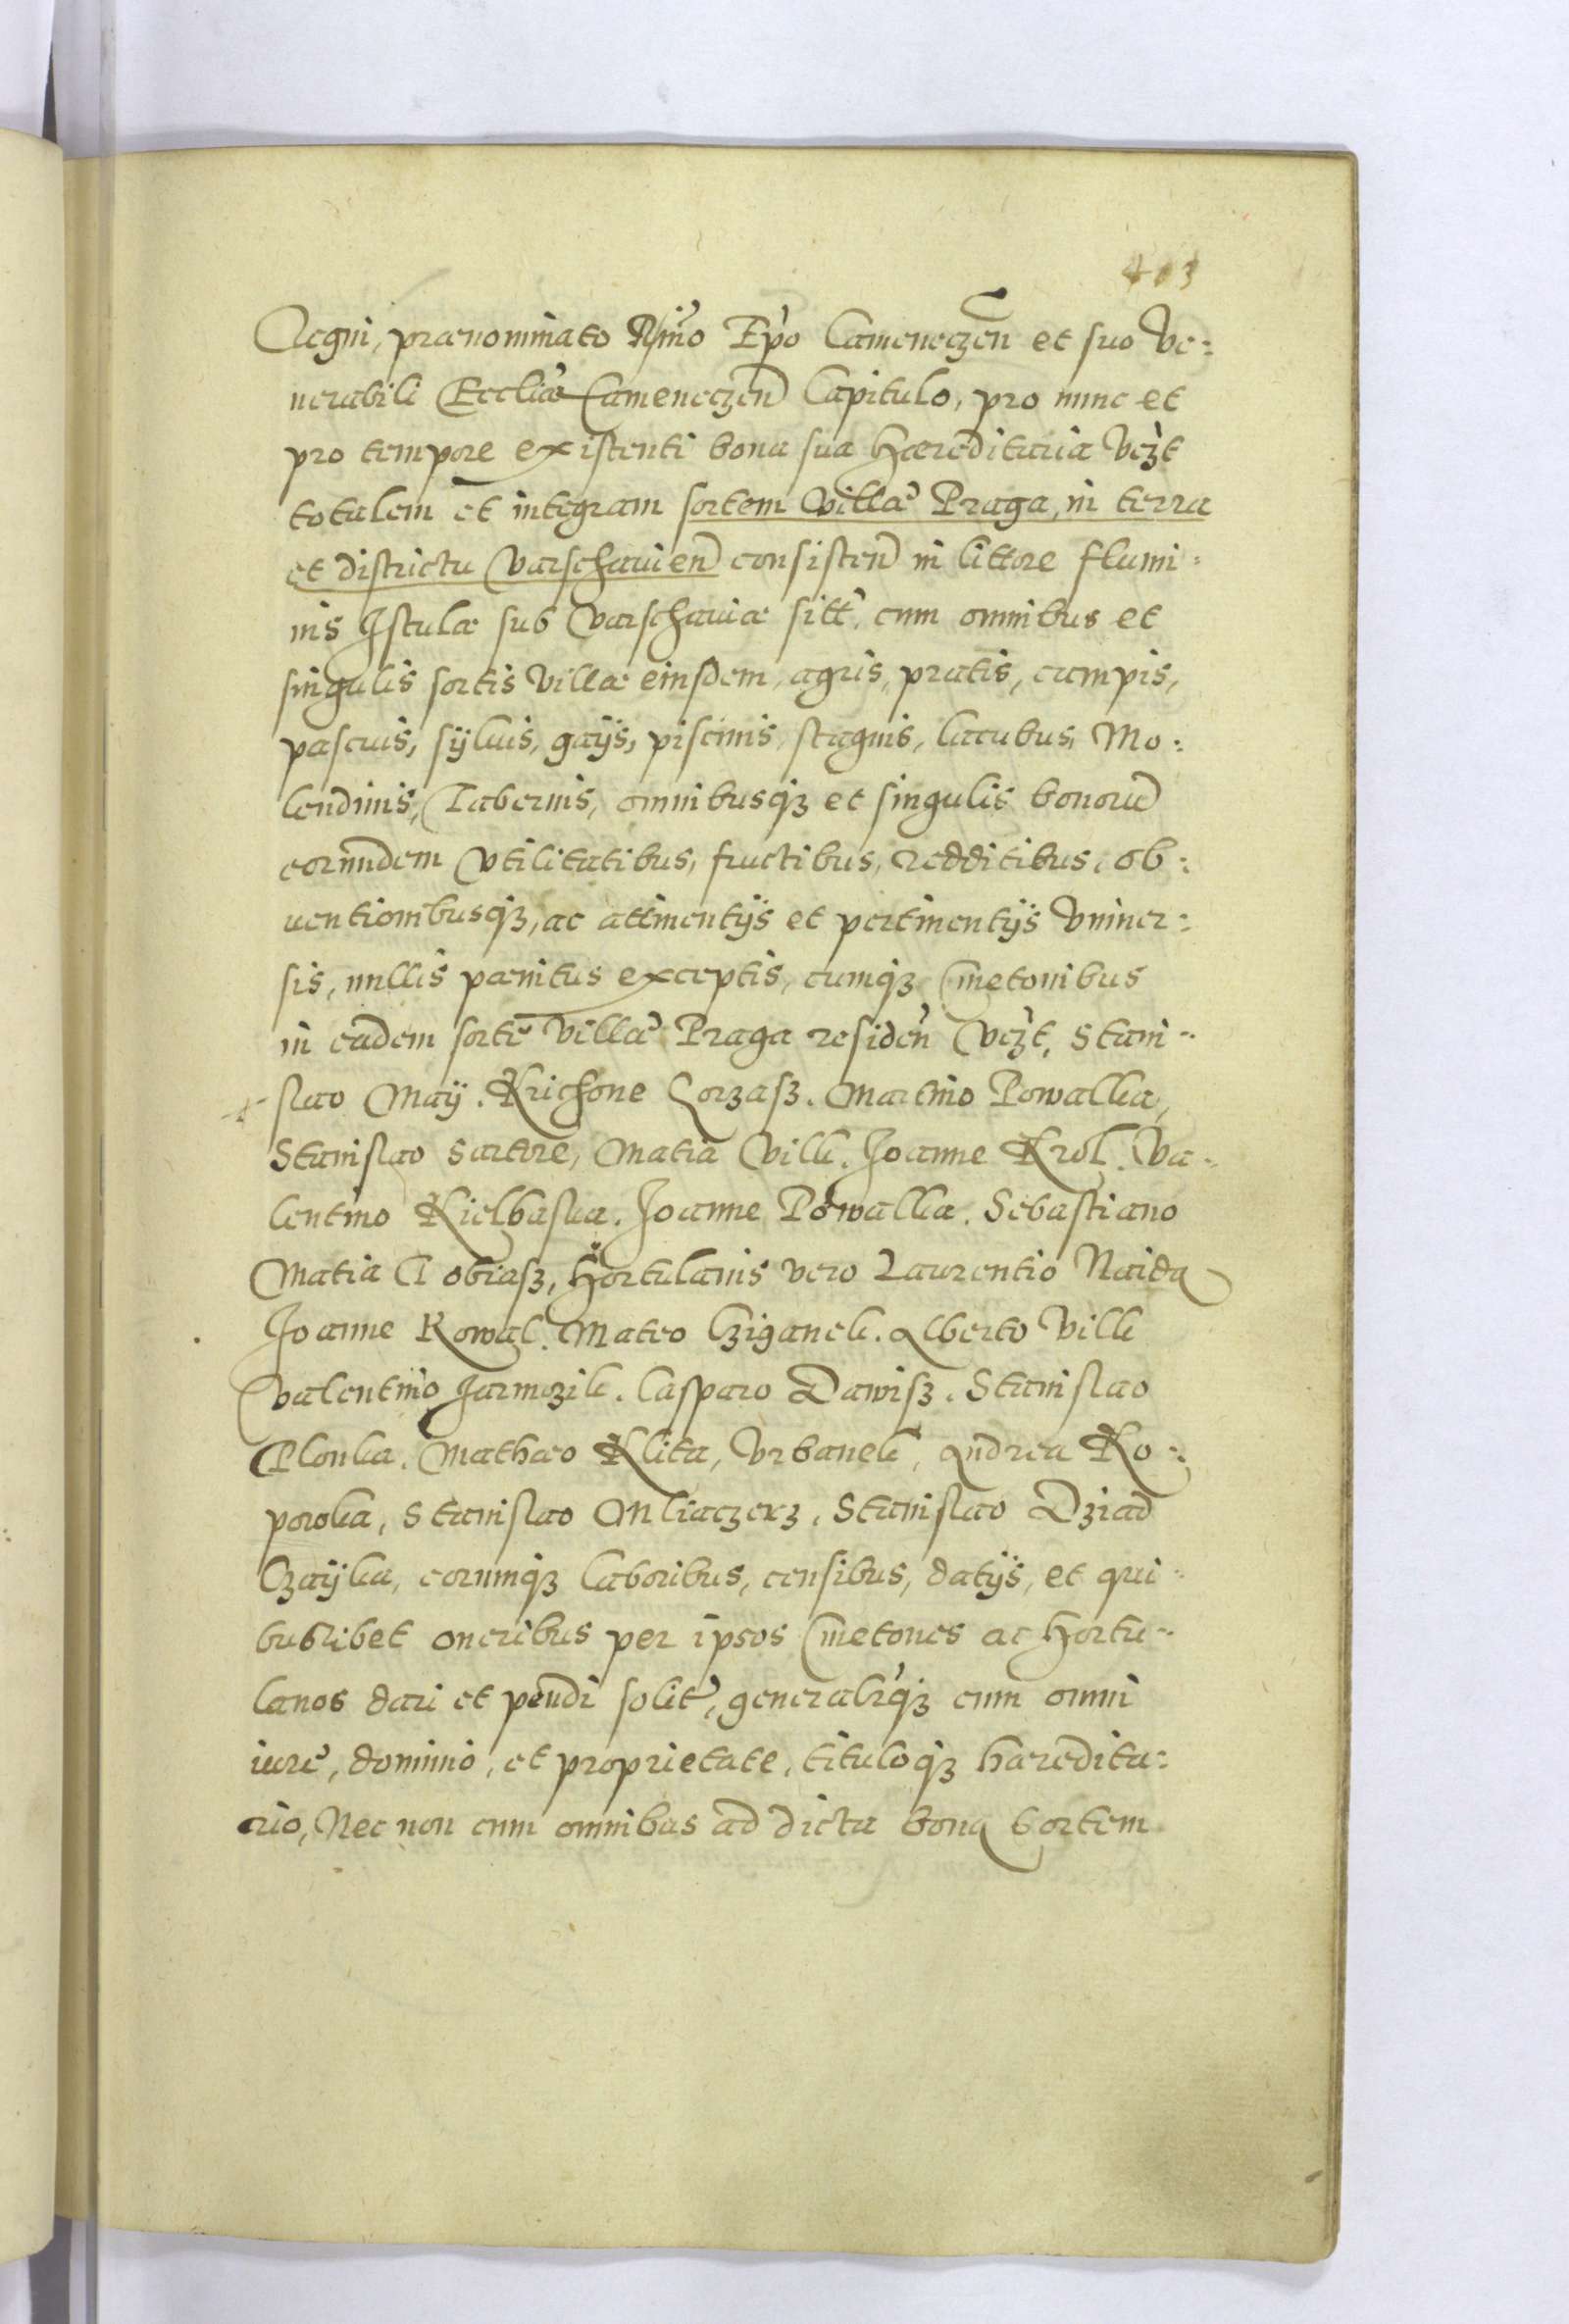 403
Regni, prænominato R̃mo Ep̃o Cameneczeñ et suo Ve:
nerabili Eccliæ Cameneczeñ Capitulo, pro nunc et
pro tempore existenti bona sua Hæreditaria Vezt
totalem et integram sortem Villæ Praga, in terra
et districtu Varschavieñ consisteñ in littore flumi:
nis Istulæ sub Varschavia sitt, cum omnibus et
singulis sortis Villæ eiusdem, agris, pratis, campis,
pascuis, sÿluis, gaÿs, piscinis, stagnis, lacubus, Mo:
lendinis, Tabernis, omnibusqȝ et singulis bonorũ
eorundem Vtilitatibus, fructibus, redditibus, ob:
uentionibusqȝ, ac attinentÿs et pertinentÿs Vniuer:
sis, nullis pænitus exceptis, cumqȝ Cmetonibus
in eadem sorte Villæ Praga resideñ Vezt, Stani:
slao Maÿ. Krichone Lorzasz. Martino Powalka,
Stanislao Sartore, Matia Vilk. Joanne Krol. Va:
lentino Kielbaska. Joanne Powalka. Sebastiano
Matia Tobiasz, Hortulanis vero Laurentio Naida
Joanne Kowal. Mateo Cziganek. Alberto Vilk
Valentino Jarmozik. Casparo Dawisz. Stanislao
Plonka. Mathæo Klita, Vrbanek, Andrea Ko:
poroka, Stanislao Mliaczerz. Stanislao Dziad
Czaÿka, eorumqȝ laboribus, censibus, datÿs, et qui:
buslibet oneribus per ipsos Cmetones ac Hortu:
lanos dari et pendi solit, generaliqȝ cum omni
iure, dominio, et proprietate, tituloqȝ hæredita:
rio, Nec non cum omnibus ad dicta bona sortem